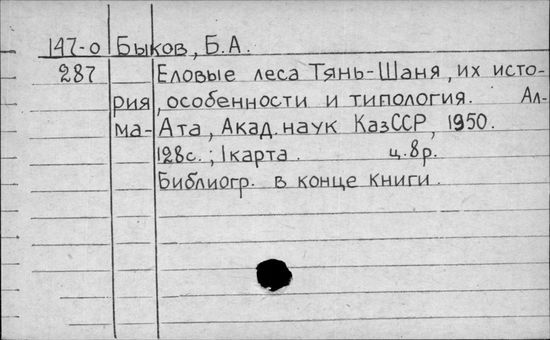 147-о Быков, Б.А.
287 Еловые леса Тянь-Шаня, их исто-
рия, особенности и типология. Ал-
ма-Ата, Акад. наук КазССР, 1950.
128с.; 1карта. ц.8р.
Библиогр. в конце книги.